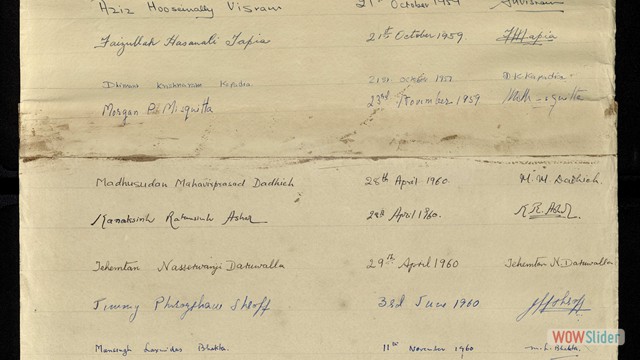 Aziz Hoosenally Visram 21st October 1959 Visram
Faizullah Hasanali Tapia 21st October 1959. Tapia
Krishnaram Kapadia. D. K. Kapadia.
Morgan P. Misquitta 23rd November 1959
Madhusudan Mahavirprasad Dadhich 28th April 1960. M. M. Dadhich.
Kanaksinh Ratansinh Asher 28th April 1960. K. R. Asher
Jehemtan Nasserwanji Daruwalla 29th April 1960 Jehemtan N. Daruwalla
Jimmy Phirozsham Shroff 3rd June 1960 Shroff
Mansingh Laxmidas Bhakta. 11th November 1960 M. L. Bhakta.
WOWSlider